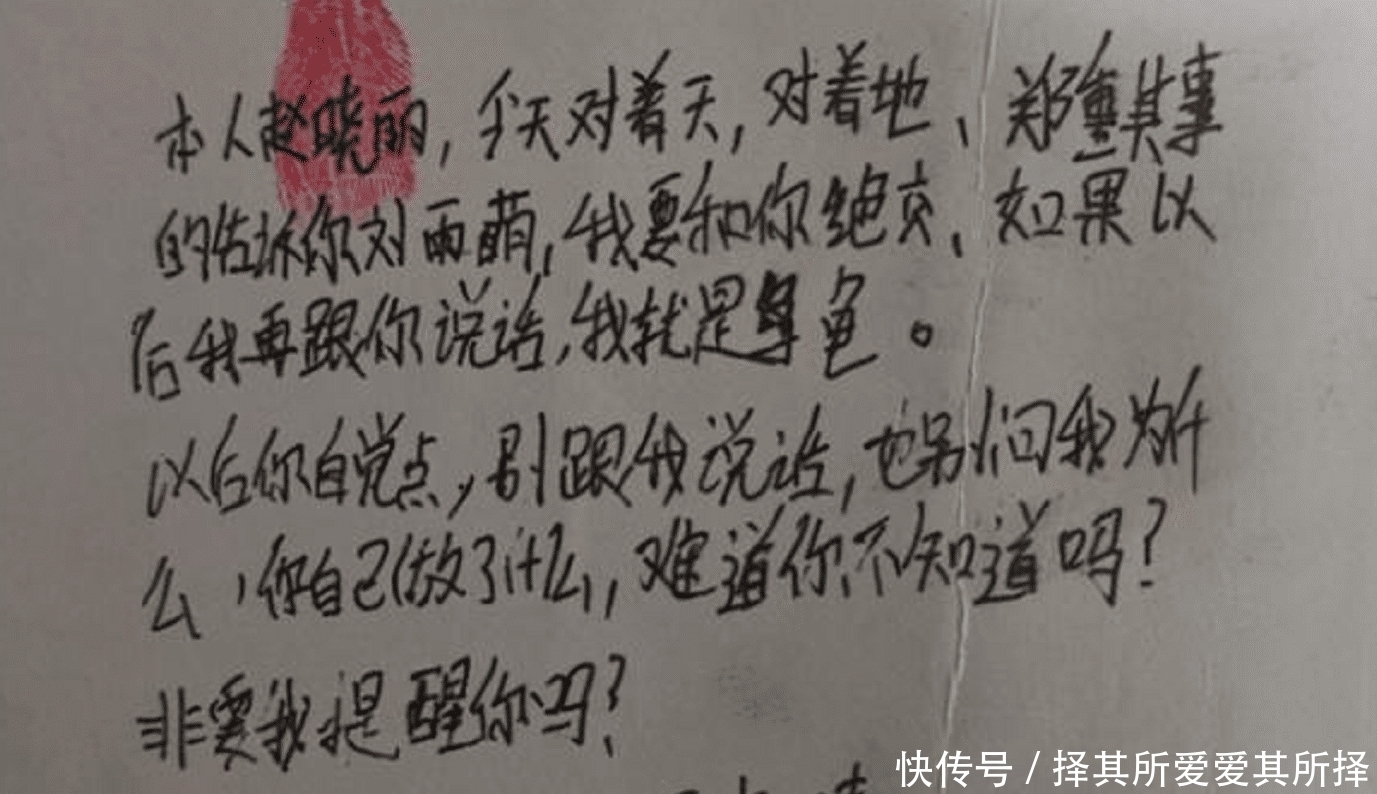 本人赵晓丽，今天对着天，对着地、郑重其事
的告诉你刘雨萌，我要和你绝交、如果以
后我再跟你说话，我就是龟。
以后你自觉点，别跟我说话，也别问我为什
么，你自己做了什么，难道你不知道吗？
非要我提醒你吗？
快传号 / 择其所爱爱其所择